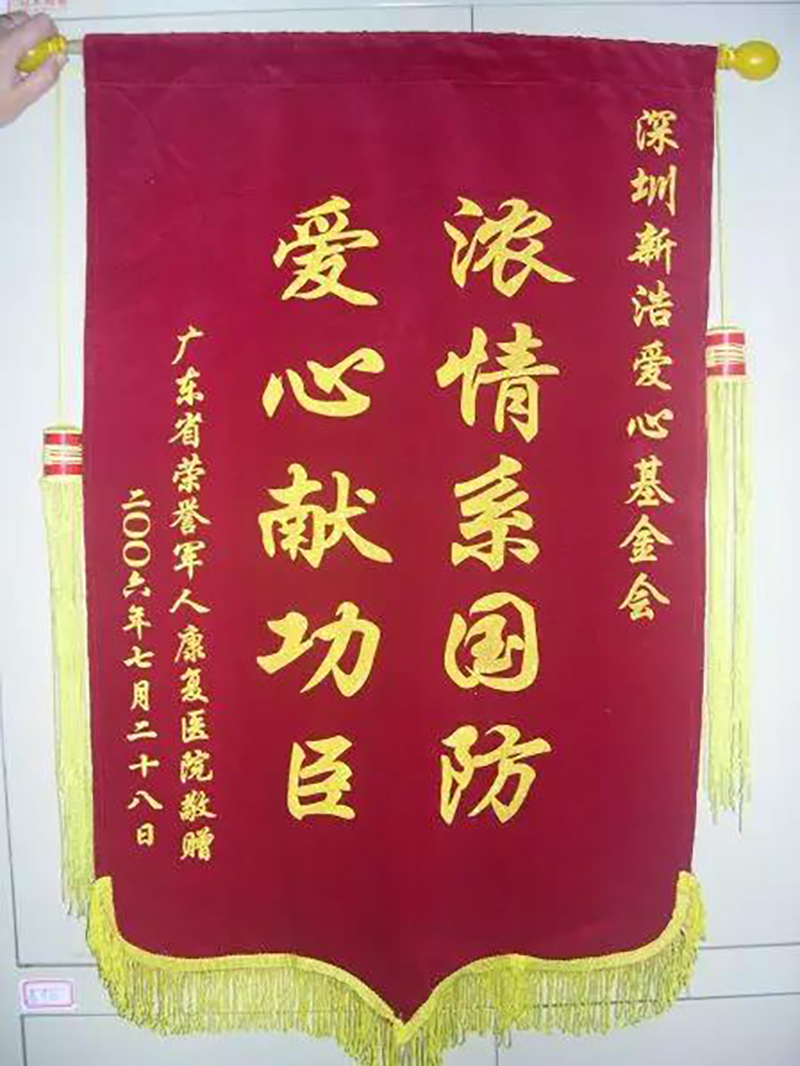 深圳新浩爱心基金会
浓情系国防
爱心献功臣
广东省荣誉军人康复医院敬赠
二〇〇六年七月二十八日